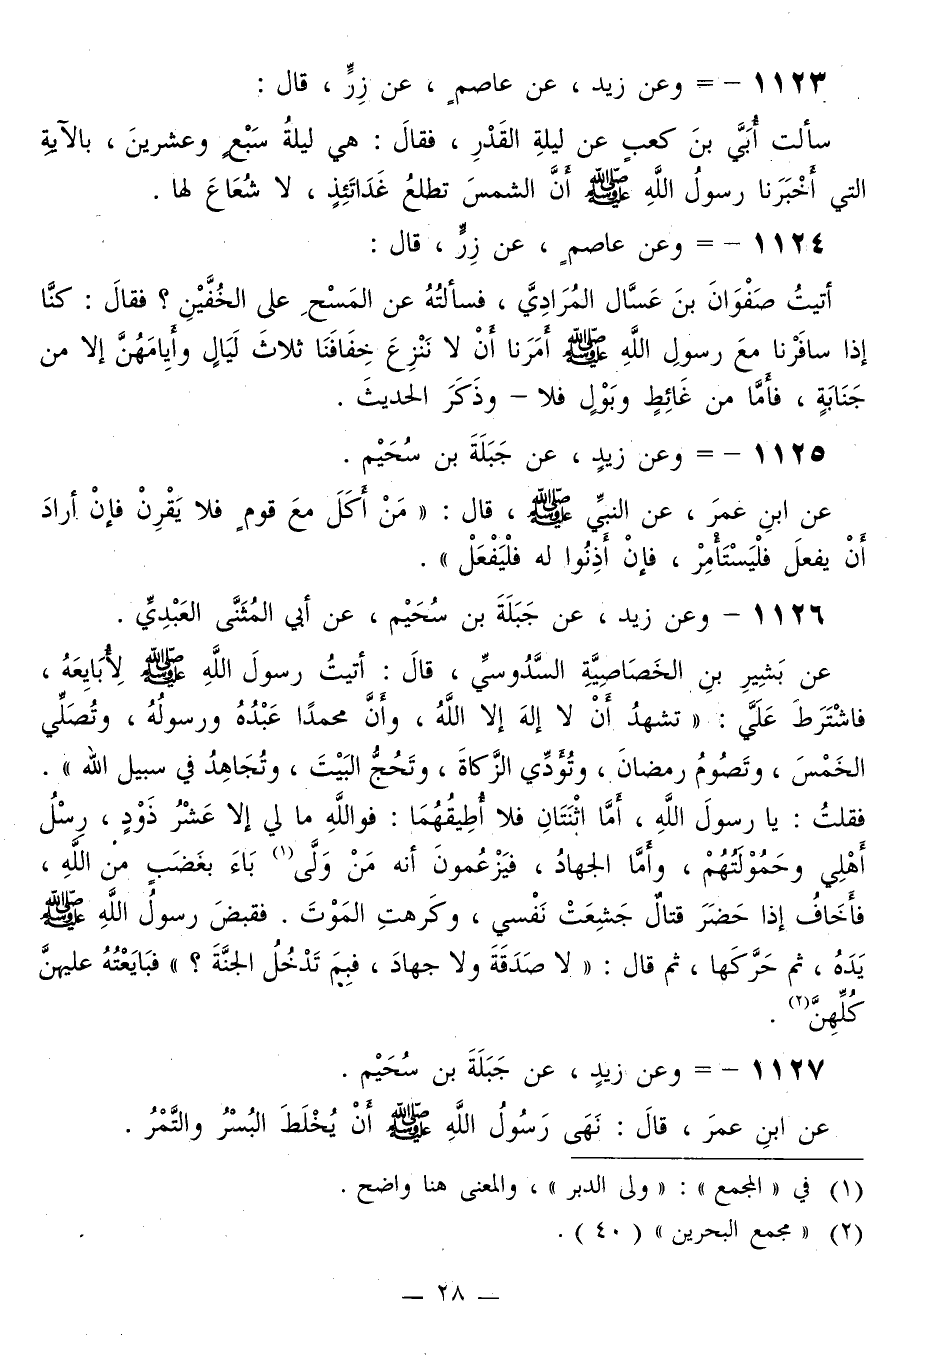 ١١٢٣ - = وعن زيد ، عن عاصمٍ ، عن زِرٍّ ، قال :
سألت أُبَيَّ بنَ كعبٍ عن ليلةِ القَدْرِ ، فقالَ : هي ليلةُ سَبْعٍ وعشرينَ ، بالآيةِ
التي أَخْبَرَنا رسولُ اللَّهِ ﷺ أَنَّ الشمسَ تطلعُ غَدَاتَئِذٍ ، لا شُعَاعَ لها .
١١٢٤ - = وعن عاصمٍ ، عن زِرٍّ ، قال :
أتيتُ صَفْوَانَ بنَ عَسَّال المُرَادِيَّ ، فسألتُهُ عن المَسْحِ على الخُفَّيْنِ ؟ فقالَ : كنَّا
إذا سافَرْنا معَ رسولِ اللَّهِ ﷺ أمَرَنا أَنْ لا نَنْزِعَ خِفَافَنَا ثلاثَ لَيَالٍ وأَيامَهُنَّ إلا من
جَنَابَةٍ ، فأَمَّا من غَائِطٍ وبَوْلٍ فلا - وذَكَرَ الحديثَ .
١١٢٥ - = وعن زيدٍ ، عن جَبَلَةَ بن سُحَيْم .
عن ابنِ عمرَ ، عن النبيِّ ﷺ ، قال : « مَنْ أَكَلَ معَ قومٍ فلا يَقْرِنْ فإنْ أرادَ
أَنْ يفعلَ فلْيَسْتَأْمِرْ ، فإنْ أَذِنُوا له فلْيَفْعَلْ » .
١١٢٦ - وعن زيد ، عن جَبَلَةَ بن سُحَيْم ، عن أبي المُثَنَّى العَبْدِيِّ .
عن بَشيرِ بنِ الخَصَاصِيَّةِ السَّدُوسيِّ ، قالَ : أتيتُ رسولَ اللَّهِ ﷺ لِأُبَايِعَهُ ،
فاشْتَرطَ عَلَيَّ : « تشهدُ أَنْ لا إلهَ إلا اللَّهُ ، وأَنَّ محمدًا عَبْدُهُ ورسولُهُ ، وتُصَلِّي
الخَمْسَ ، وتَصُومُ رمضانَ ، وتُؤَدِّي الزَّكاةَ ، وتَحُجُّ البَيْتَ ، وتُجَاهِدُ في سبيل الله » .
فقلتُ : يا رسولَ اللَّهِ ، أَمَّا اثْنَتَانِ فلا أُطِيقُهُمَا : فواللَّهِ ما لي إلا عَشْرُ ذَوْدٍ ، رِسْلُ
أَهْلِي وحَمُوْلَتُهُمْ ، وأَمَّا الجهادُ ، فيَزْعُمونَ أنه مَنْ وَلَّى(١) بَاءَ بغَضَبٍ من اللَّهِ ،
فأَخَافُ إذا حَضَرَ قتالٌ جَشِعَتْ نَفْسي ، وكَرهتِ المَوْتَ . فقبضَ رسولُ اللَّهِ ﷺ
يَدَهُ ، ثم حَرَّكَها ، ثم قال : « لا صَدَقَةَ ولا جهادَ ، فبِمَ تَدْخُلُ الجنَّةَ ؟ » فبَايَعْتُهُ عليهنَّ
كُلِّهِنَّ(٢) .
١١٢٧ - = وعن زيدٍ ، عن جَبَلَةَ بن سُحَيْم .
عن ابنِ عمرَ ، قالَ : نَهَى رَسُولُ اللَّهِ ﷺ أَنْ يُخْلَطَ البُسْرُ والتَّمْرُ .
(١) في « المجمع » : « ولى الدبر » ، والمعنى هنا واضح .
(٢) « مجمع البحرين » ( ٤٠ ) .
— ٢٨ —